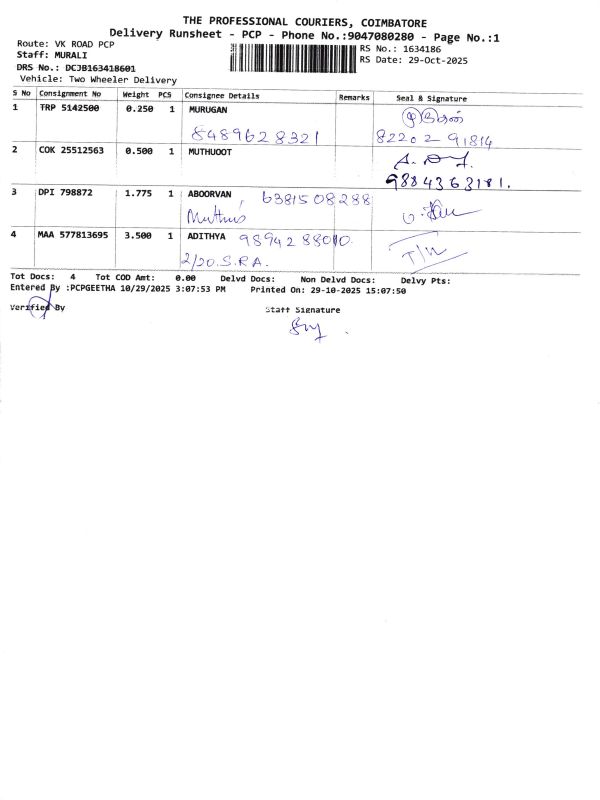 THE PROFESSIONAL COURIERS, COIMBATORE
Delivery Runsheet - PCP - Phone No.:9047080280 - Page No.:1
Route: VK ROAD PCP
RS No.: 1634186
Staff: MURALI
RS Date: 29-Oct-2025
DRS No.: DCJB163418601
Vehicle: Two Wheeler Delivery
S No Consignment No Weight PCS Consignee Details Remarks Seal & Signature
1 TRP 5142500 0.250 1 MURUGAN
8489628321 82202 91814
2 COK 25512563 0.500 1 MUTHUOOT
9884363181.
3 DPI 798872 1.775 1 ABOORVAN 6381508288
4 MAA 577813695 3.500 1 ADITHYA 9894288010.
2/20.S.R.A.
Tot Docs: 4 Tot COD Amt: 0.00 Delvd Docs: Non Delvd Docs: Delvy Pts:
Entered By :PCPGEETHA 10/29/2025 3:07:53 PM Printed On: 29-10-2025 15:07:50
Verified By
Staff Signature